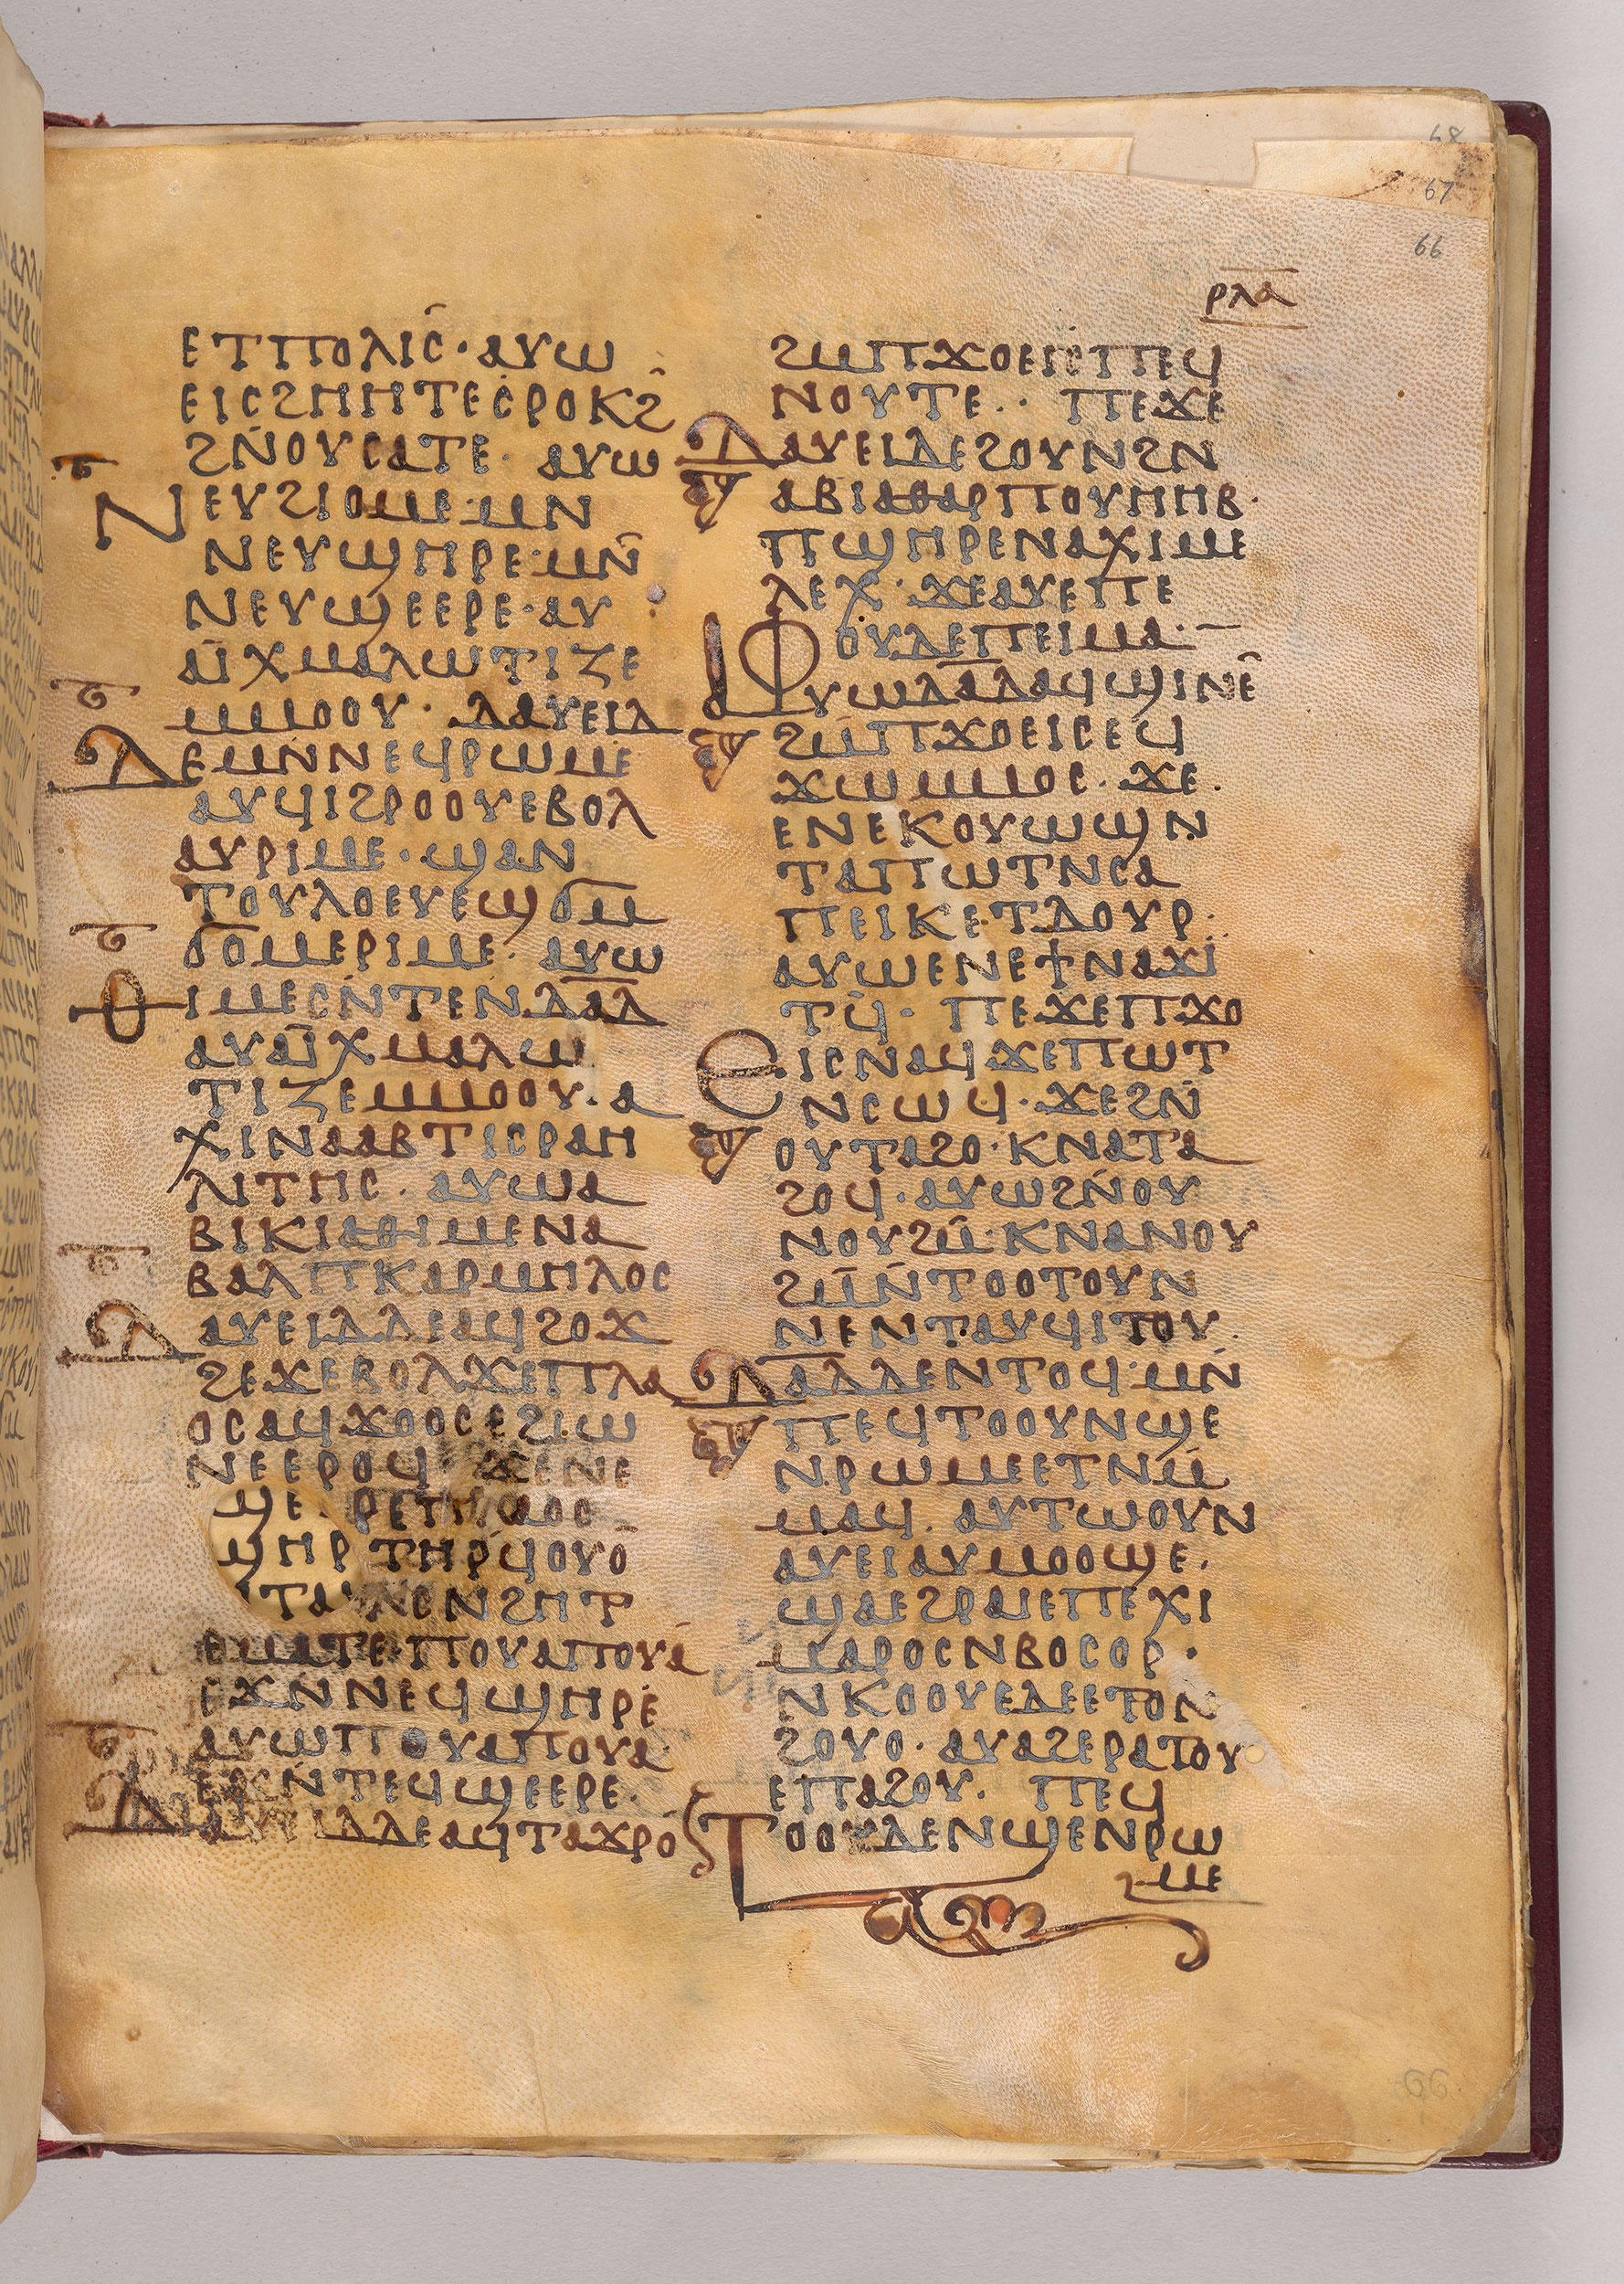 68
67
66
ⲣⲗⲁ
ⲉⲧⲡⲟⲗⲓⲥ̄· ⲁⲩⲱ
ⲉⲓⲥϩⲏⲏⲧⲉⲥⲣⲟⲕϩ̄
ϩⲛ̄ⲟⲩⲥⲁⲧⲉ· ⲁⲩⲱ
ⲛⲉⲩϩⲓⲟⲙⲉ·ⲙⲛ
ⲛⲉⲩϣⲏⲣⲉ·ⲙⲛ̄
ⲛⲉⲩϣⲉⲉⲣⲉ·ⲁⲩ
ⲁⲓⲭⲙⲁⲗⲱⲧⲓⲍⲉ
ⲙⲙⲟⲟⲩ· ⲇⲁⲩⲉⲓⲇ
ⲇⲉⲙⲛ̄ⲛⲉϥⲣⲱⲙⲉ
ⲁⲩϥⲓϩⲣⲟⲟⲩⲉⲃⲟⲗ
ⲁⲩⲣⲓⲙⲉ·ϣⲁⲛ
ⲧⲟⲩⲗⲟⲉⲩⲉϣϭⲙ̄
ϭⲟⲙⲉⲣⲓⲙⲉ· ⲁⲩⲱ
ⲑⲓⲙⲉⲥⲛ̄ⲧⲉⲛⲇⲁ̄ⲇ
ⲁⲩⲁⲓⲭⲙⲁⲗⲱ
ⲧⲓⲍⲉⲙⲙⲟⲟⲩ·ⲁ
ⲭⲓⲛⲁⲁⲃⲧⲓⲥⲣⲁⲏ
ⲗⲓⲧⲏⲥ· ⲁⲩⲱⲁ
ⲃⲓⲕⲓⲁⲑⲓⲙⲉⲛⲁ
ⲃⲁⲗⲡⲕⲁⲣⲙⲏⲗⲟⲥ
ⲇⲁⲩⲉⲓⲇⲇⲉⲁϥϩⲟϫ
ϩⲉϫⲉⲃⲟⲗϫⲉⲡⲗⲁ
ⲟⲥⲁϥϫⲟⲟⲥⲉϩⲓⲱ
ⲛⲉⲉⲣⲟϥ ϫⲉⲛⲉ
ϣⲉ ⲣⲉⲧⲏ ⲗⲁⲟⲥ
ϣⲏⲣ ⲧⲏⲣϥⲟⲩⲟ̄
ⲧⲁⲩ ⲛⲉⲛϩⲏⲧ
ⲉⲙⲁⲧⲉ ⲡⲟⲩⲁⲡⲟⲩⲁ
ⲉϫⲛ̄ⲛⲉϥϣⲏⲣⲉ
ⲁⲩⲱⲡⲟⲩⲁⲡⲟⲩⲁ
ⲉϫⲛ̄ⲧⲉϥϣⲉⲉⲣⲉ·
ⲇⲁⲩⲉⲓⲇⲇⲉⲁϥⲧⲁϫⲣⲟ
ϩⲙⲡϫⲟⲉⲓⲥⲡⲉϥ
ⲛⲟⲩⲧⲉ·· ⲡⲉϫⲉ
ⲇⲁⲩⲉⲓⲇⲉϩⲟⲩⲛϩⲛ
ⲁⲃⲓⲁⲑⲁⲣⲡⲟⲩⲏⲏⲃ·
ⲡϣⲏⲣⲉⲛⲁⲭⲓⲙⲉ
ⲗⲉⲭ· ϫⲉⲁⲩⲉⲡⲉ
ⲫⲟⲩⲇⲉⲡⲉⲓⲙⲁ·
ⲁⲩⲱⲇⲁ̄ⲇⲁϥϣⲓⲛⲉ̄
ϩⲙ̄ⲡϫⲟⲉⲓⲥⲉϥ
ϫⲱⲙⲙⲟⲥ· ϫⲉ·
ⲉⲛⲉⲕⲟⲩⲱϣⲛ
ⲧⲁⲡⲱⲧⲛⲥⲁ
ⲡⲉⲓⲕⲉⲧⲇⲟⲩⲣ·
ⲁⲩⲱⲉⲛⲉϯⲛⲁϫⲓ
ⲧϥ̄· ⲡⲉϫⲉⲡϫⲟ
ⲉⲓⲥⲛⲁϥϫⲉⲡⲱⲧ
ⲛⲥⲱϥ· ϫⲉϩⲛ̄
ⲟⲩⲧⲁϩⲟ·ⲕⲛⲁⲧⲁ
ϩⲟϥ·ⲁⲩⲱϩⲛ̄ⲟⲩ
ⲛⲟⲩϩⲙ̄·ⲕⲛⲁⲛⲟⲩ
ϩⲙ̄ⲛ̄ⲧⲟⲟⲧⲟⲩⲛ
ⲛⲉⲛⲧⲁⲩϥⲓⲧⲟⲩ·
ⲇⲁ̄ⲇⲇⲉⲛⲧⲟϥ·ⲙⲛ̄
ⲡⲉϥⲧⲟⲟⲩⲛϣⲉ
ⲛⲣⲱⲙⲉⲉⲧⲛⲙ̄
ⲙⲁϥ· ⲁⲩⲧⲱⲟⲩⲛ
ⲁⲩⲉⲓⲁⲩⲙⲟⲟϣⲉ·
ϣⲁⲉϩⲣⲁⲓⲉⲡⲉⲭⲓ
ⲙⲁⲣⲟⲥⲛⲃⲟⲥⲟⲣ·
ⲛⲕⲟⲟⲩⲉⲇⲉⲉⲧⲟⲛ
ϩⲟⲩⲟ·ⲁⲩⲁϩⲉⲣⲁⲧⲟⲩ
ⲉⲡⲁϩⲟⲩ· ⲡⲉϥ
ⲧⲟⲟⲩⲇⲉⲛϣⲉⲛⲣⲱ
ⲙⲉ
66